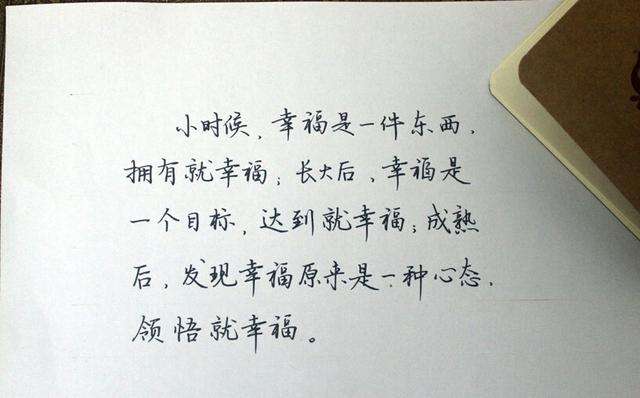 小时候，幸福是一件东西，
拥有就幸福；长大后，幸福是
一个目标，达到就幸福；成熟
后，发现幸福原来是一种心态，
领悟就幸福。